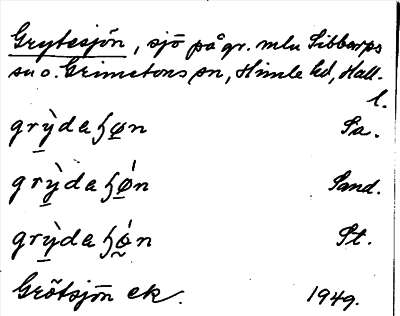 Grytesjön, sjö på gr. mlu Sibbarps
su o. Grimetons sn, Himle hd, Hall.
l.
grỳ̲daɧø̲n Sa.
grỳ̲daɧǿ̲n Sand.
grỳ̲daɧó̰n St.
Grötsjön ek. 1949.